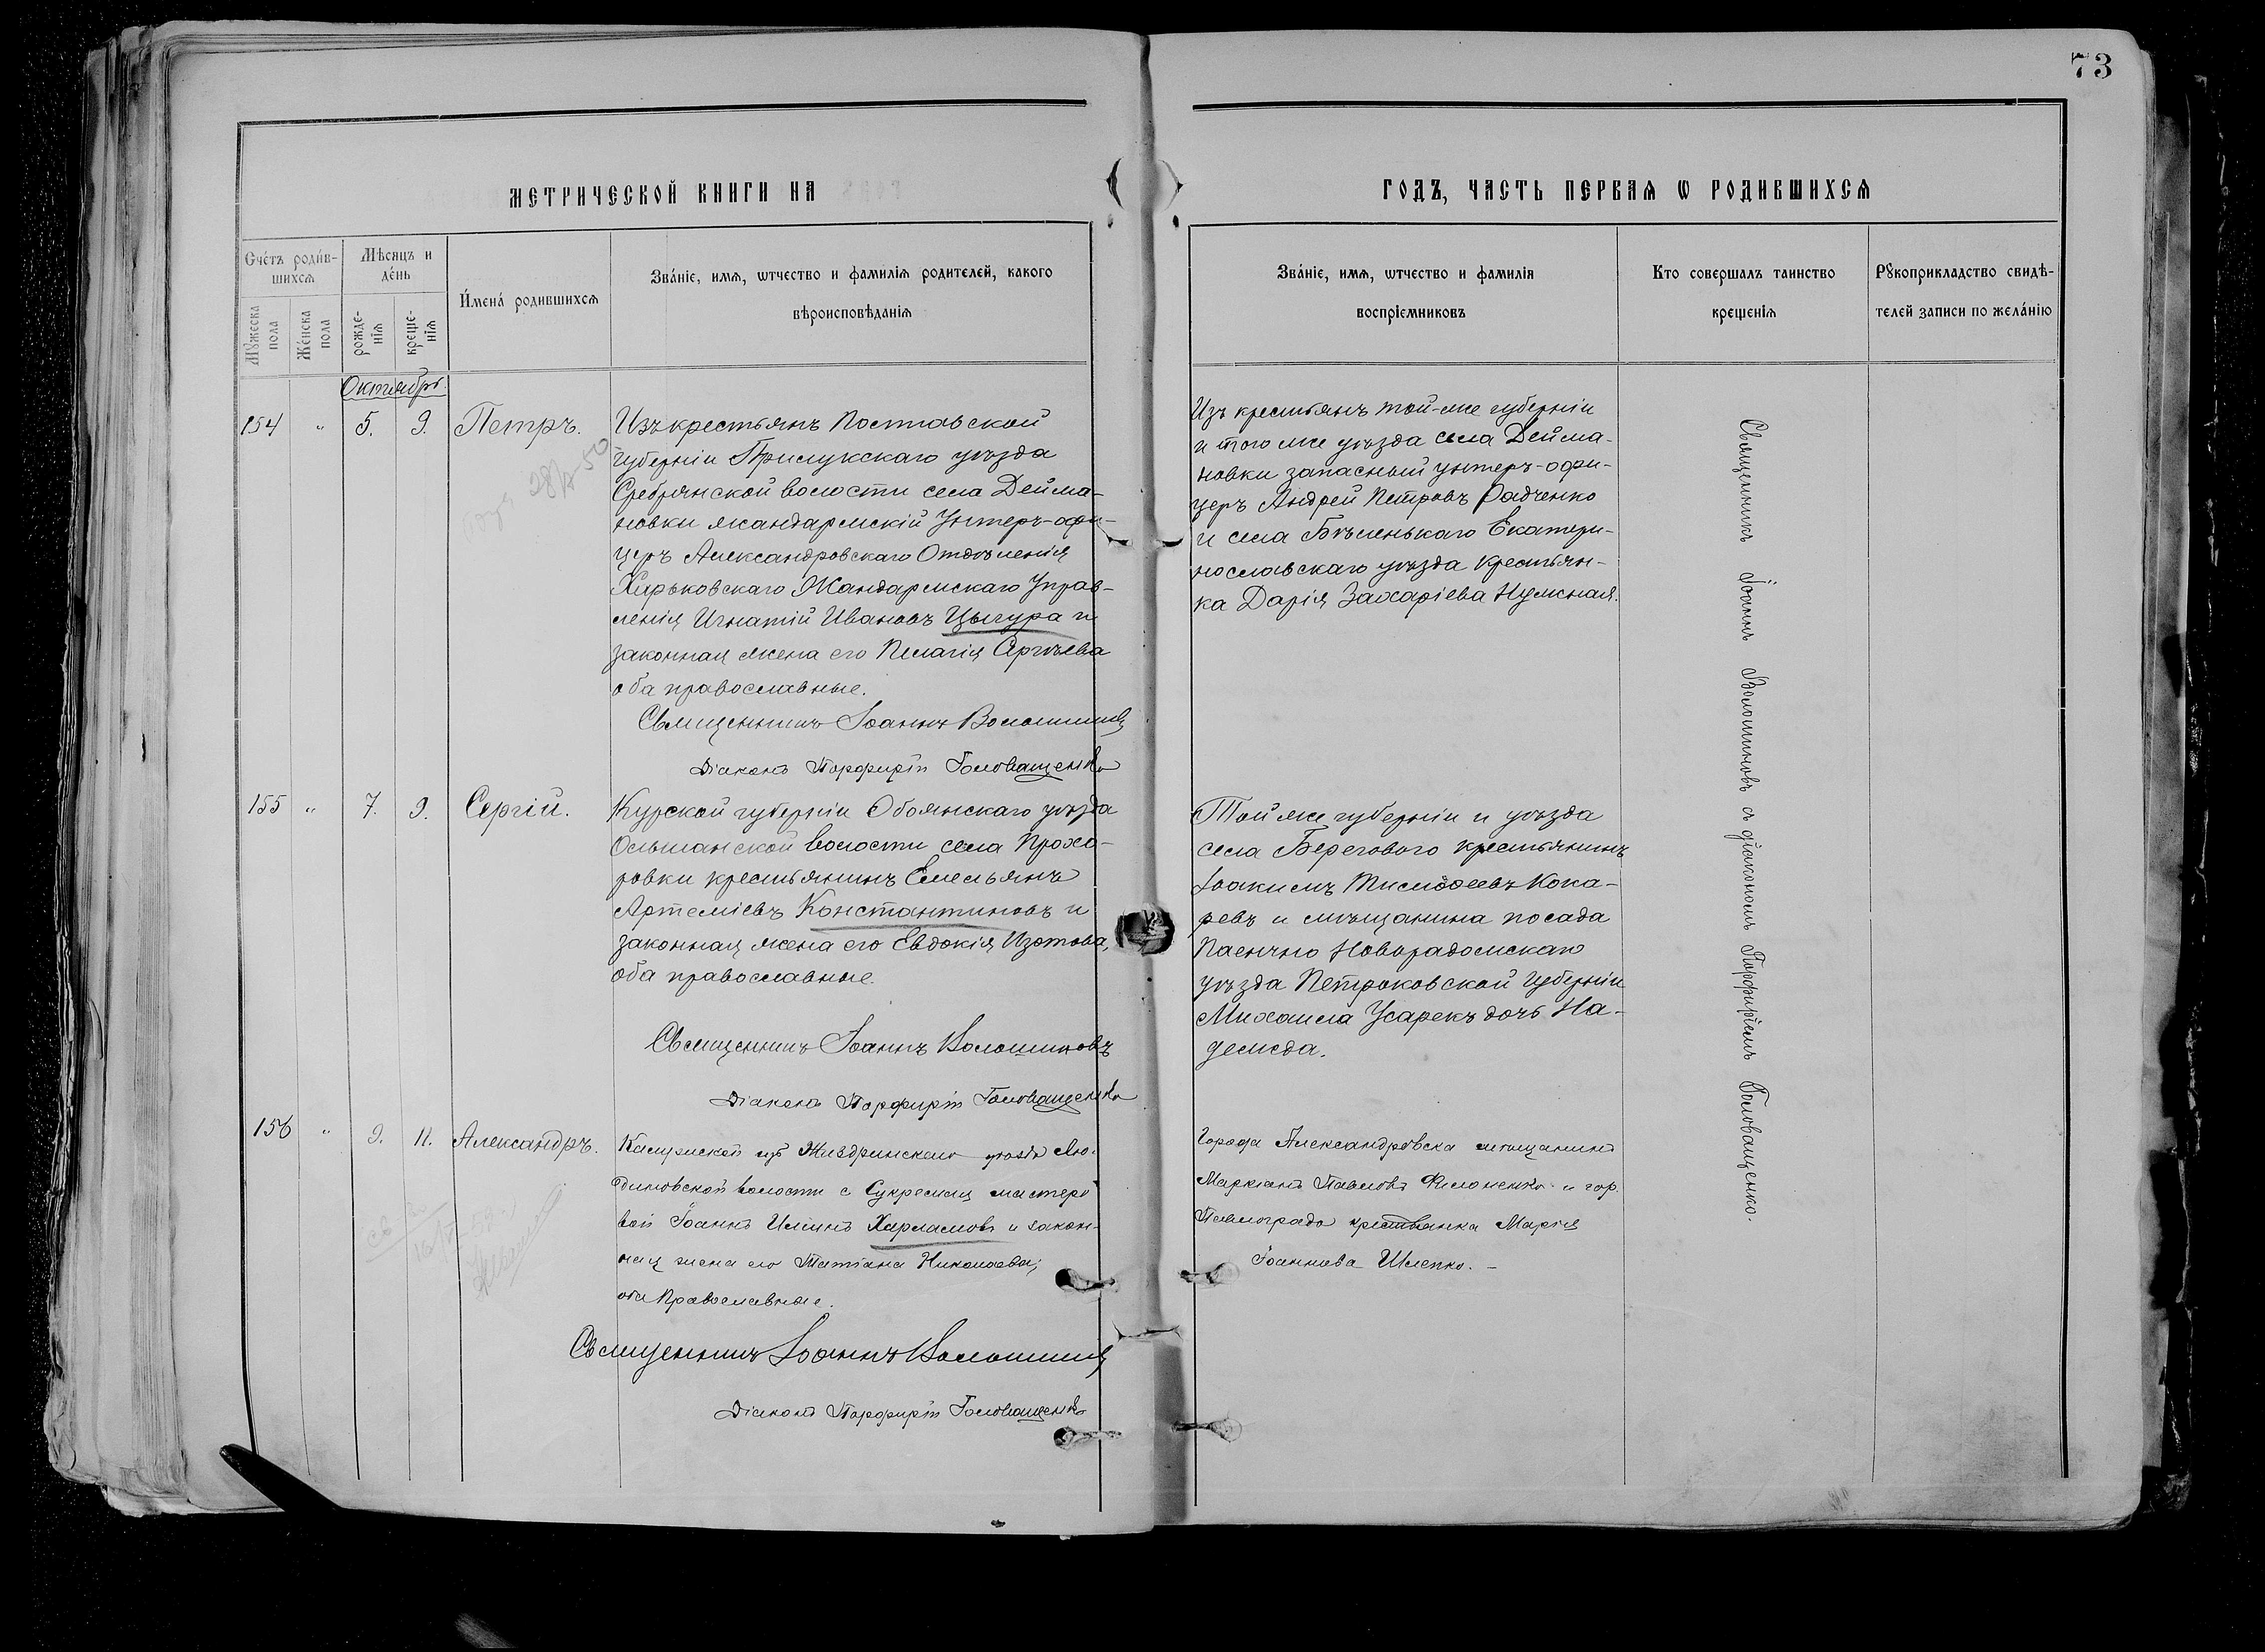 73
МЕТРИЧЕСКОЙ КНИГИ НА
ГОДЪ, ЧАСТЬ ПЕРВАѦ Ѡ РОДИВШИХСѦ
Счетъ родив-
шихсѧ
Мужеска
пола
Женска
пола
Мѣсяцъ и
день
рожде-
нїѧ
креще-
нїѧ
Имена родившихсѧ
Званїе, имѧ, ѡтчество и фамилїѧ родителей, какого
вѣроисповѣданїѧ
Званїе, имѧ, ѡтчество и фамилїѧ
воспрїемниковъ
Кто совершалъ таинство
крещенїѧ
Рꙋкоприкладство свидѣ-
телей записи по желанїю
Октябрь.
154 " 5. 9. Петръ.
Изъ крестьянъ Полтавской
губернiи Прилукскаго уѣзда
Сребрянской волости села Дейма-
новки жандармскiй Унтеръ-офи-
церъ Александровскаго Отдѣленiя
Харьковскаго Жандармскаго Управ-
ленiя Игнатiй Ивановъ Цыгура и
законная жена его Пелагiя Сергѣева
оба православные.
Священникъ Iоаннъ Волошиновъ
Дiаконъ Порфирiй Головащенко
Изъ крестьянъ той-же губернiи
и того же уѣзда села Дейма-
новки запасный унтеръ-офи-
церъ Андрей Петровъ Радченко
и села Бѣленькаго Екатери-
нославскаго уѣзда крестьян-
ка Дарiя Захарiева Нужная.
155 " 7. 9. Сергiй.
Курской губернiи Обоянскаго уѣзда
Ольшанской волости села Прохо-
ровки крестьянинъ Емельянъ
Артемiевъ Константиновъ и
законная жена его Евдокiя Изотова,
оба православные.
Священникъ Iоаннъ Волошиновъ
Дiаконъ Порфирiй Головащенко
Той же губернiи и уѣзда
села Берегового крестьянинъ
Iоакимъ Тимоѳеевъ Кока-
ревъ и мѣщанина посада
Паенчно Новорадомскаго
уѣзда Петроковской губернiи
Михаила Усарекъ дочь На-
дежда.
156 " 9. 11. Александръ.
Калужской губ Жиздринскаго уѣзда Лю-
диновской волости с Сукремля мастеро
вой Iоаннъ Илiинъ Харламовъ и закон-
ная жена его Татiана Николаева;
оба Православные.
Священникъ Iоаннъ Волошиновъ
Дiаконъ Порфирiй Головащенко
Города Александровска мѣщанинъ
Маркiанъ Павловъ Филоненко и гор.
Павлограда крестьянка Марiя
Iоаннова Шлепко. -
Священникъ Iоаннъ Волошиновъ съ дiакономъ Порфирiемъ Головащенко.